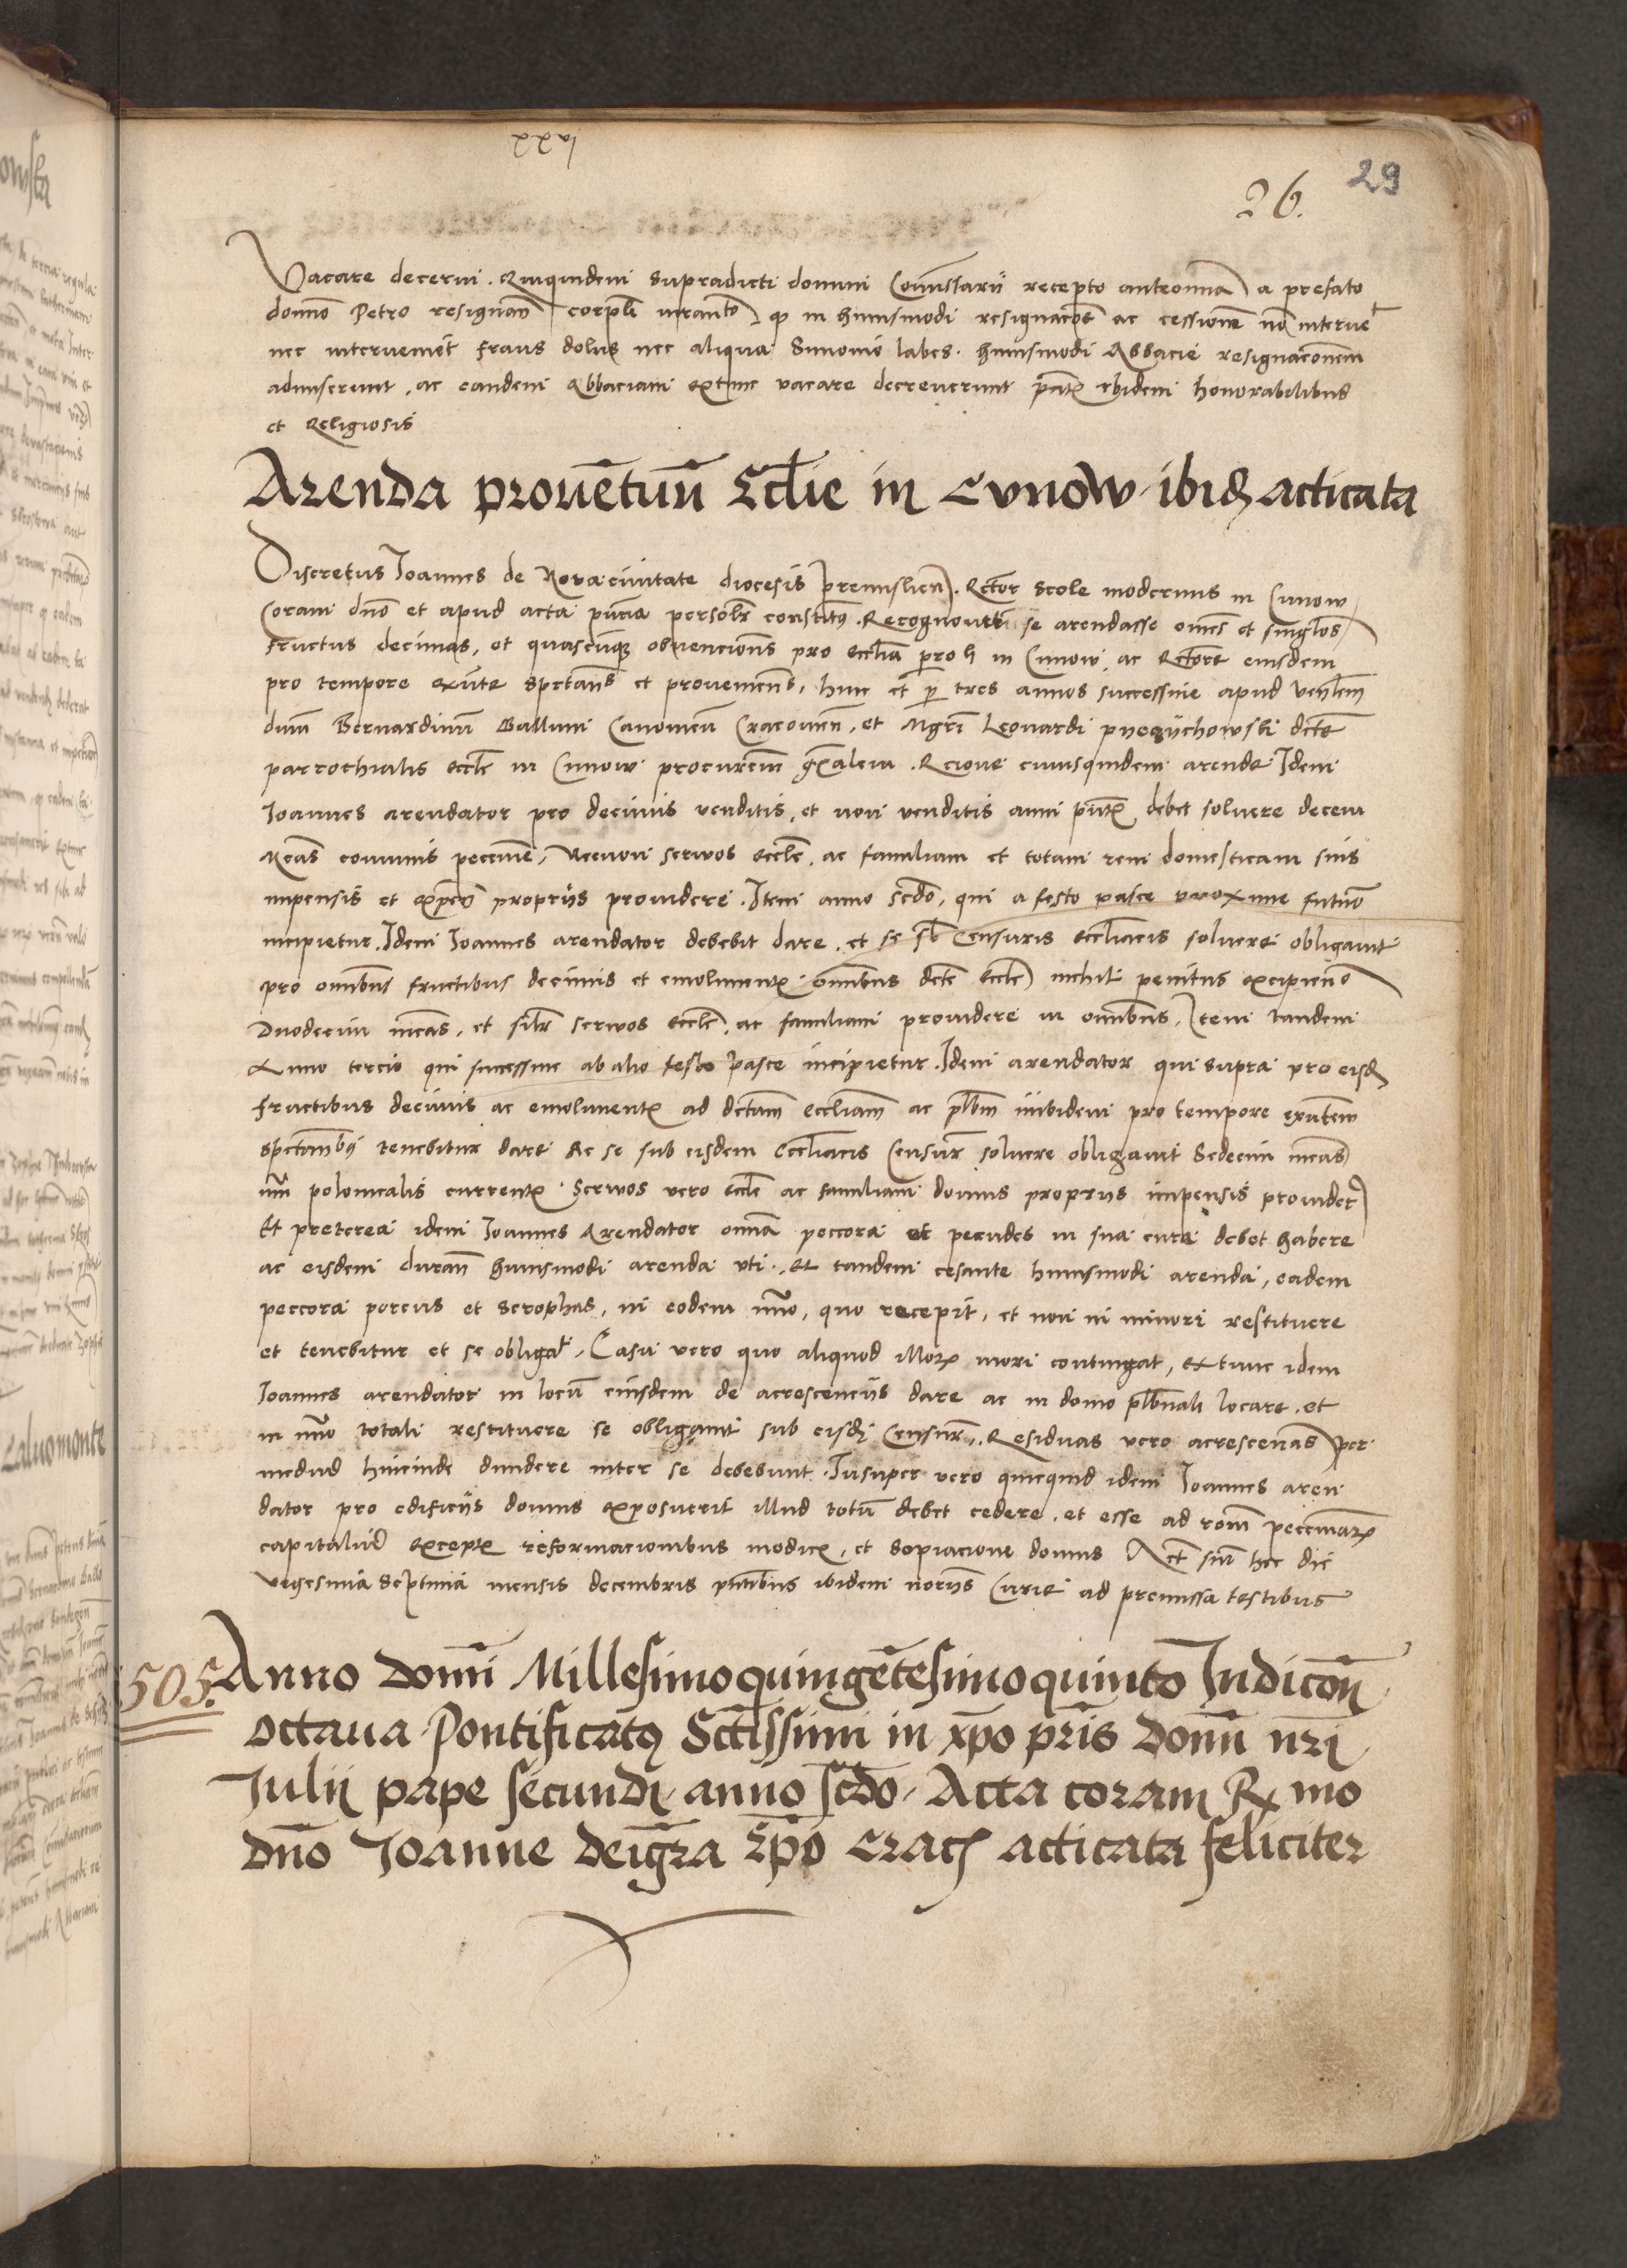 xxvj
26. 29
Vacare decerni. Quiquidem supradicti domini Comissarii recepto ante omnia a prefato
domno Petro resignan corpli iurando qp in huiusmodi resignacoe ac cessione no interue
nec interueniet fraus dolus nec aliqua Simonie labes. huiusmodi Abbacie resignaconem
admiserunt, ac eandem Abbaciam extunc vacare decreuerunt pntz ibidem honorabilibus
et Religiosis
Arenda prouetuu Eclie in Cunow ibid acticata
Discretus Joannes de Noua ciuitate diocesis Premislien. Rector scole modernus in Cunow
Coram dno et apud acta pncia personlr constitus. Recognouit se arendasse omes et singlos
fructus decimas, et quascunqz obuenciones pro ecclia proh in Cunow, ac Rectore eiusdem
pro tempore exnte spctans et prouemens, hinc et p tres annos successiue apud venlem
dnm Bernardinum Gallum Canonicum Cracouien, et Mgri Leonardi pyegyichowski dcte
parrochialis eccle in Cunow procurem gnalem. Racione cuiusquidem arende Idem
Joannes arendator pro decimis venditis, et non venditis anni pntz debet soluere decem
Mcas comunis peccunie, Necnon seruos eccle, ac familiam et totam rem domesticam suis
impensis et expen propriis prouidere. Item anno scdo, qui a festo pasce proxime futuro
incipietur. Idem Joannes arendator debebit dare, et se sb Censuris eccliacis soluere obligauit
pro omnibus fructibus decimis et emolumentz omnibus dcte Eccle nichil penitus excipiendo
Duodecim mcas, et silr seruos eccle, ac familiam prouidere in omnibus, Item tandem
Anno tercio qui successiue ab alio festo Pasce incipietur. Idem arendator qui supra pro eisd
fructibus decimis ac emolumentz ad dctam eccliam ac plbm inibidem pro tempore exntem
spctantibus tenebitur dare Ac se sub eisdem Eccliacis Censur soluere obligauit Sedecim mcas
nri polonicalis currentz. Seruos vero eccle ac familiam domus propriis impensis prouider
Et preterea idem Joannes Arendator omia peccora et pecudes in sua cura debet habere
ac eisdem duran huiusmodi arenda vti. Et tandem cesante huiusmodi arenda, eadem
peccora porcus et scrophas, in eodem nro, quo recepit, et non in minori restituere
et tenebitur et se obligat. Casu vero quo aliquod illorz mori contingat, extunc idem
Joannes arendator in locu eiusdem de acrescenciis dare ac in domo plbnali locare, et
in nro totali restituere se obligauit sub eisd Censur. Residuas vero acrescencias per
mediud hincinde diuidere inter se debebunt. Insuper vero quicquid idem Joannes aren
dator pro edificiis domus exposuerit illud totu debet cedere, et esse ad rom peccuniarz
capitaliud exceptz reformacionibus modicz, et sopiacione domus Act sut hec die
vigesima septima mensis decembris pntibus ibidem notriis Curie ad premissa testibus
1505. Anno domi Millesimoquingetesimoquinto Indicon
octaua Pontificatus Sctissimi in xpo pris Domi nri
Julij pape secundi anno scdo Acta coram Rx mo
dno Joanne deigra Epo Crac acticata feliciter